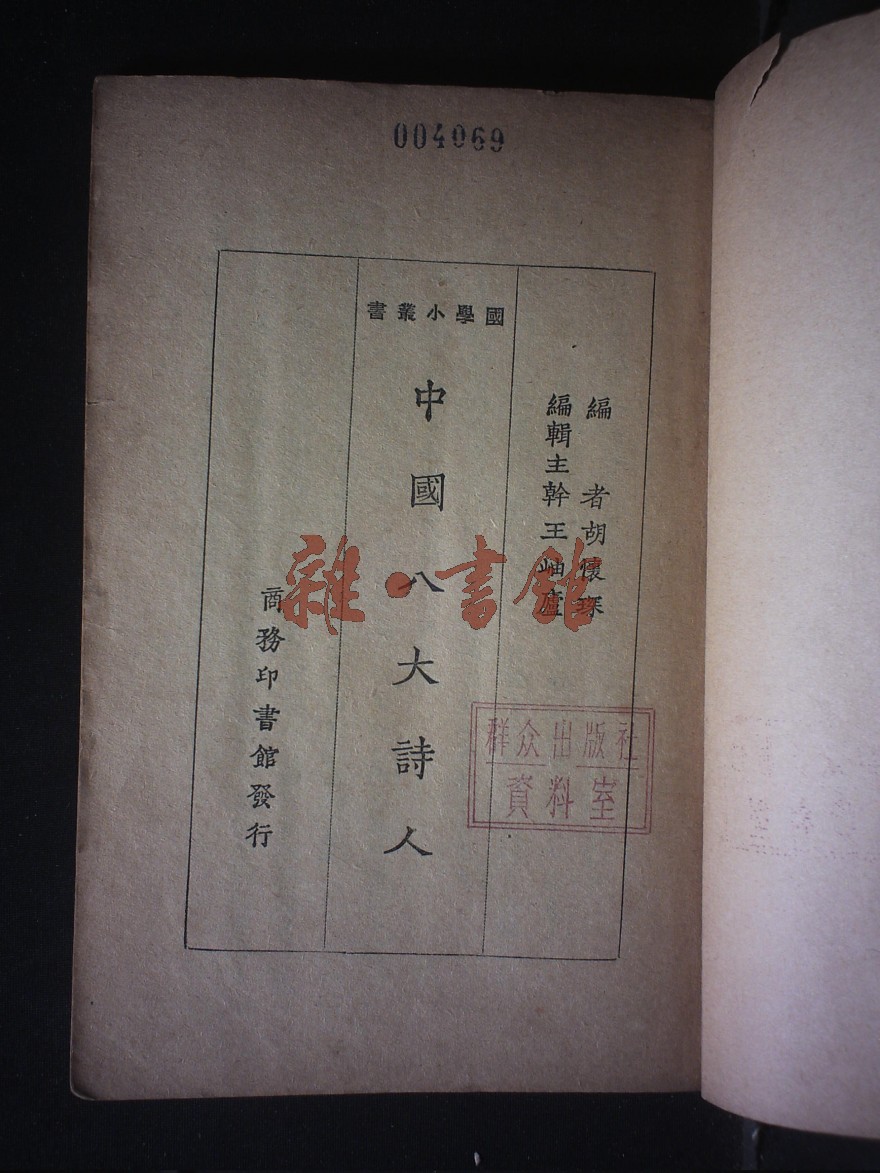 004069
國學小叢書
編者胡懷琛
編輯主幹王岫廬
中國八大詩人
商務印書館發行
雜·書館
群众出版社
資料室